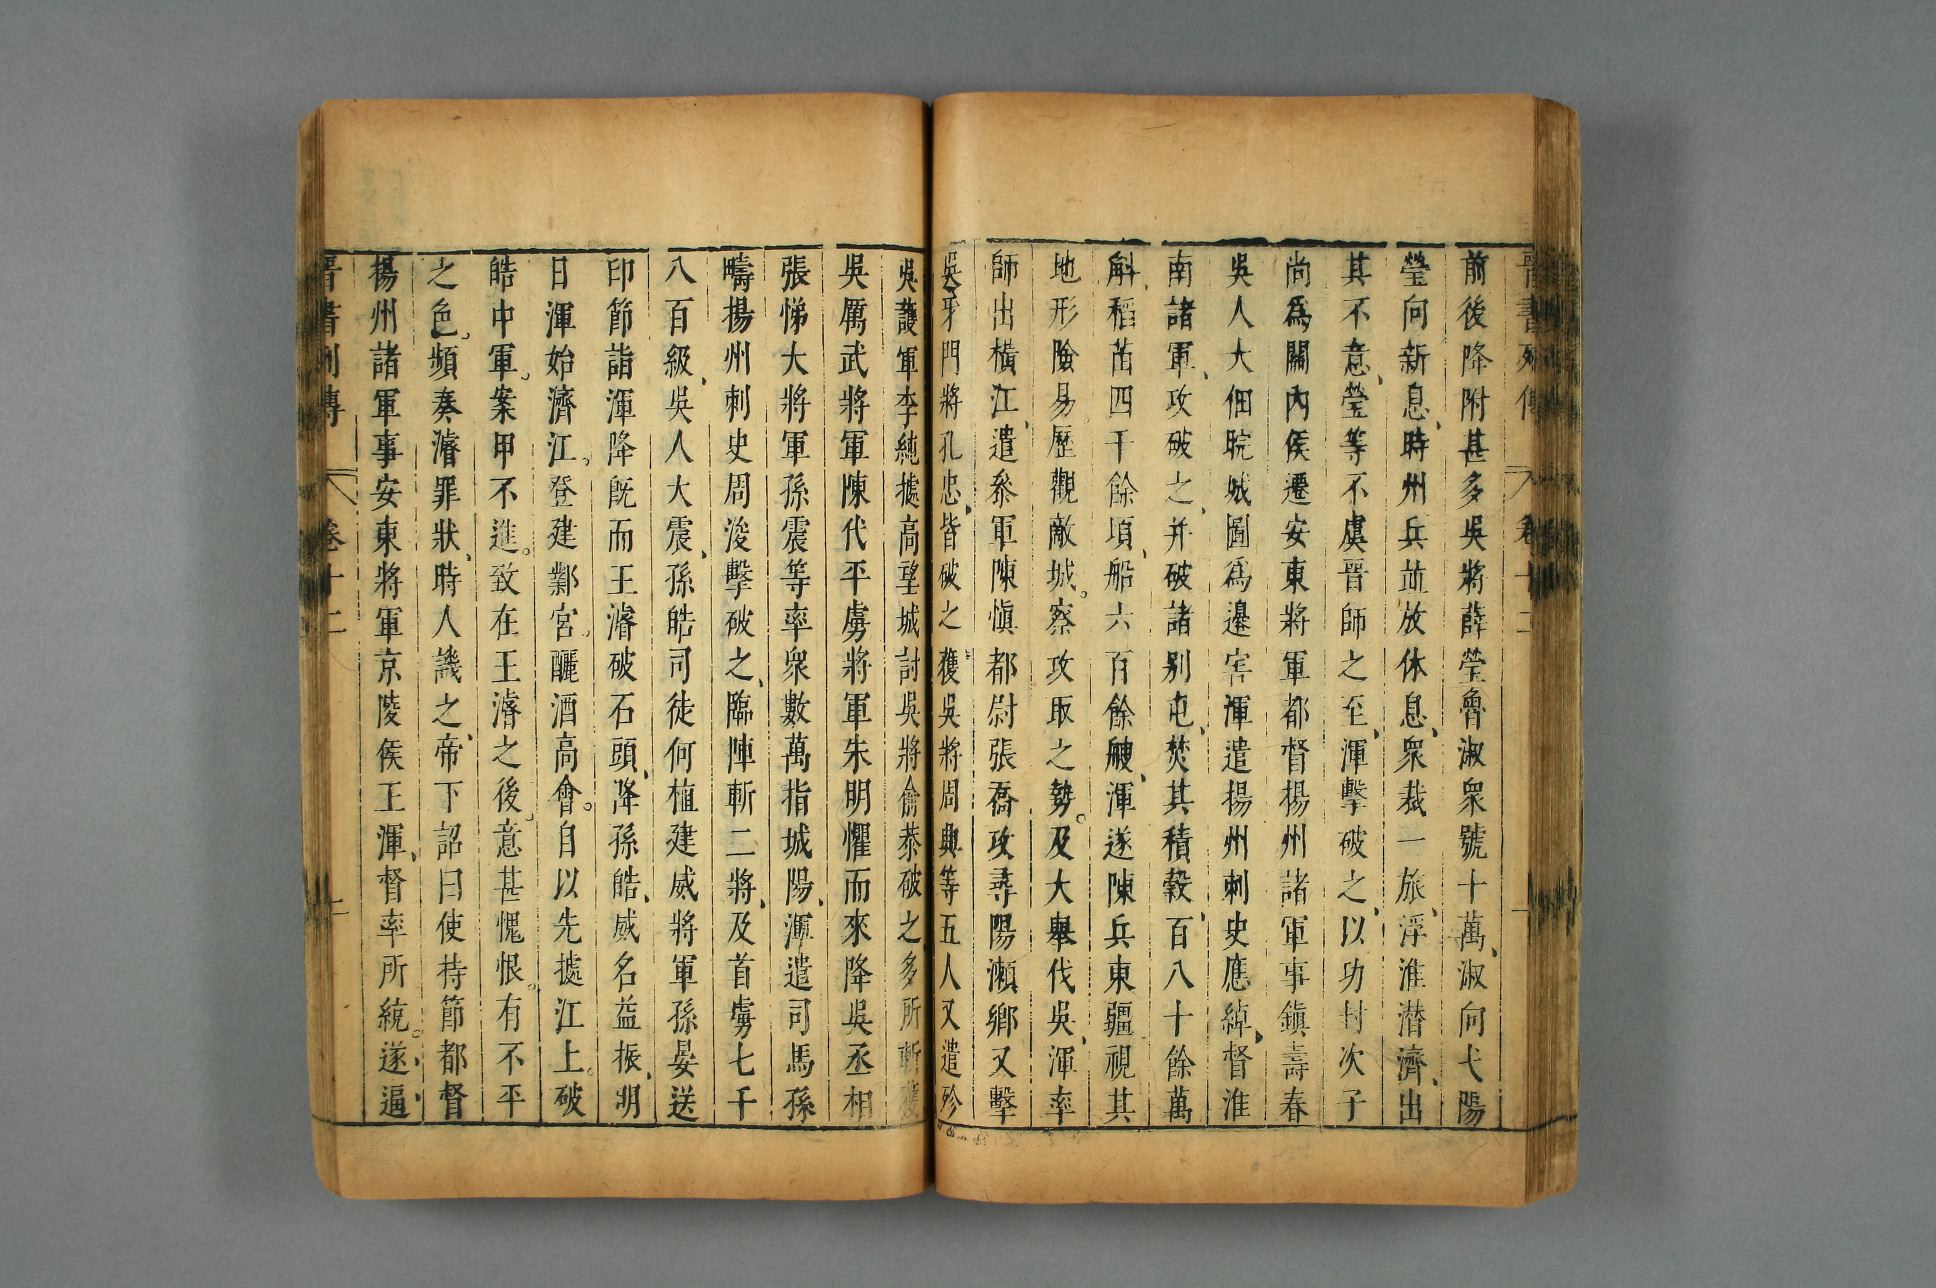 晉書列傳 卷十二
前後降附甚多吳將薛瑩魯淑衆號十萬、淑向弋陽
瑩向新息、時州兵並放休息、衆裁一旅、浮淮潛濟、出
其不意、瑩等不虞晉師之至、渾擊破之、以功封次子
尚爲關內侯遷安東將軍都督揚州諸軍事鎮壽春
吳人大佃皖城圖爲邊害渾遣揚州刺史應綽、督淮
南諸軍、攻破之、并破諸别屯、焚其積穀、百八十餘萬
斛稻苗四千餘頃、船六百餘艘、渾遂陳兵東疆視其
地形險易歷觀敵城。察攻取之勢。及大舉伐吳、渾率
師出橫江、遣參軍陳愼都尉張喬攻尋陽瀨鄉又擊
吳牙門將孔忠、皆破之獲吳將周興等五人又遣殄
吳護軍李純據高望城討吳將俞恭破之、多所斬獲
吳厲武將軍陳代平虜將軍朱明懼而來降吳丞相
張悌大將軍孫震等率衆數萬指城陽、渾遣司馬孫
疇揚州刺史周浚擊破之、臨陣斬二將、及首虜七千
八百級、吳人大震、孫皓司徒何植建威將軍孫晏送
印節詣渾降旣而王濬破石頭、降孫皓、威名益振、明
日渾始濟江。登建鄴宮。釃酒高會。自以先據江上。破
皓中軍。案甲不進。致在王濬之後。意甚愧恨。有不平
之色。頻奏濬罪狀、時人譏之、帝下詔曰使持節都督
揚州諸軍事安東將軍京陵侯王渾、督率所統。遂逼
晉書列傳 卷十二